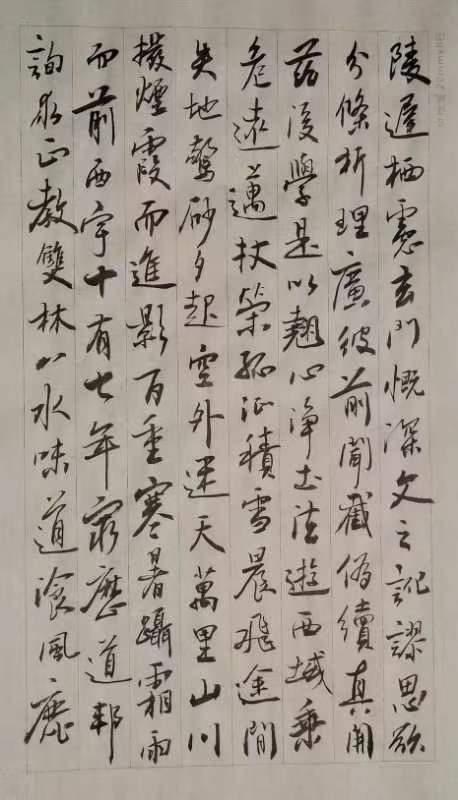 陵遲栖慮玄門慨深文之訛謬思欲
分條析理廣彼前聞截偽續真開
茲後學是以翹心淨土法遊西域乘
危遠邁杖策孤征積雪晨飛途間
失地驚砂夕起空外迷天萬里山川
撥煙霞而進影百重寒暑躡霜雨
而前西宇十有七年窮歷道邦
詢求正教雙林八水味道飡風鹿